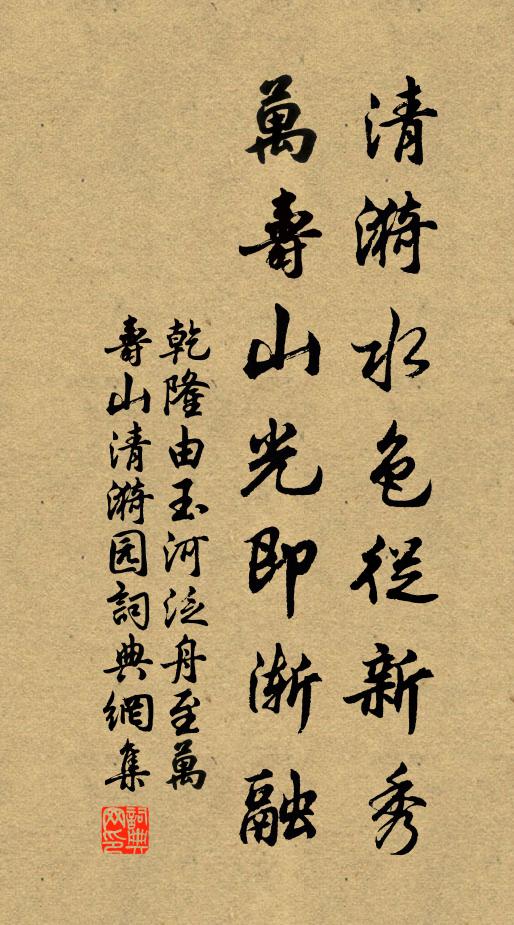 清漪水色從新秀
萬壽山光即渐融
乾隆由玉河泛舟至萬
壽山清漪园詞典網集
詞典
网印